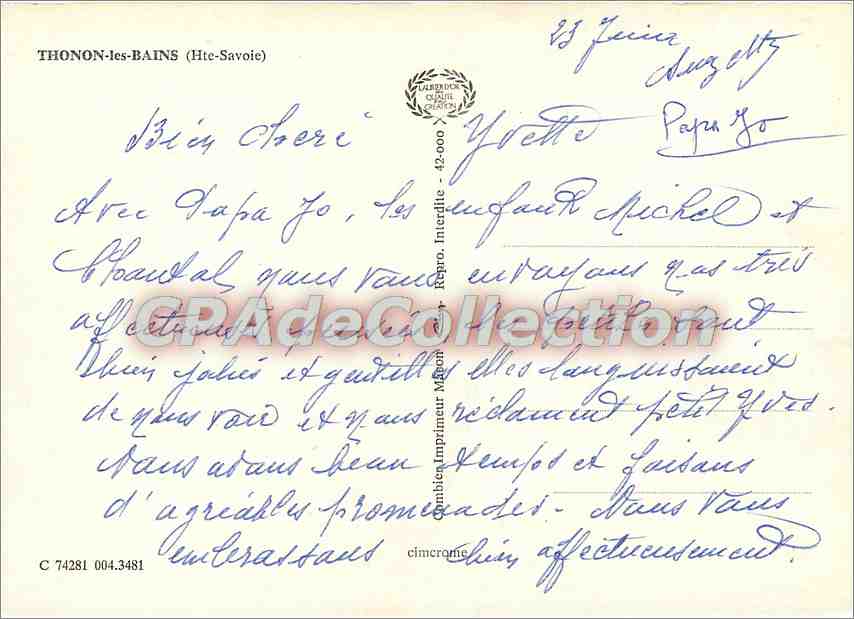 THONON-les-BAINS (Hte-Savoie)
23 Juin
Papa Jo
LAURIER D'OR
DE
QUALITÉ
CRÉATION
Bien Chere Yvette
Avec Papa Jo, les enfants Michel et
Chantal, nous vous envoyons nos très
affectueuses pensées, les petites sont
bien jolies et gentilles elles languissaient
de nous voir et nous réclament petit Yves.
Nous avons beau temps et faisons
d'agréables promenades. Nous vous
embrassons bien affectueusement.
CPAdeCollection
Combier Imprimeur Macon Repro. Interdite - 42-000
cimcrome
C 74281 004.3481